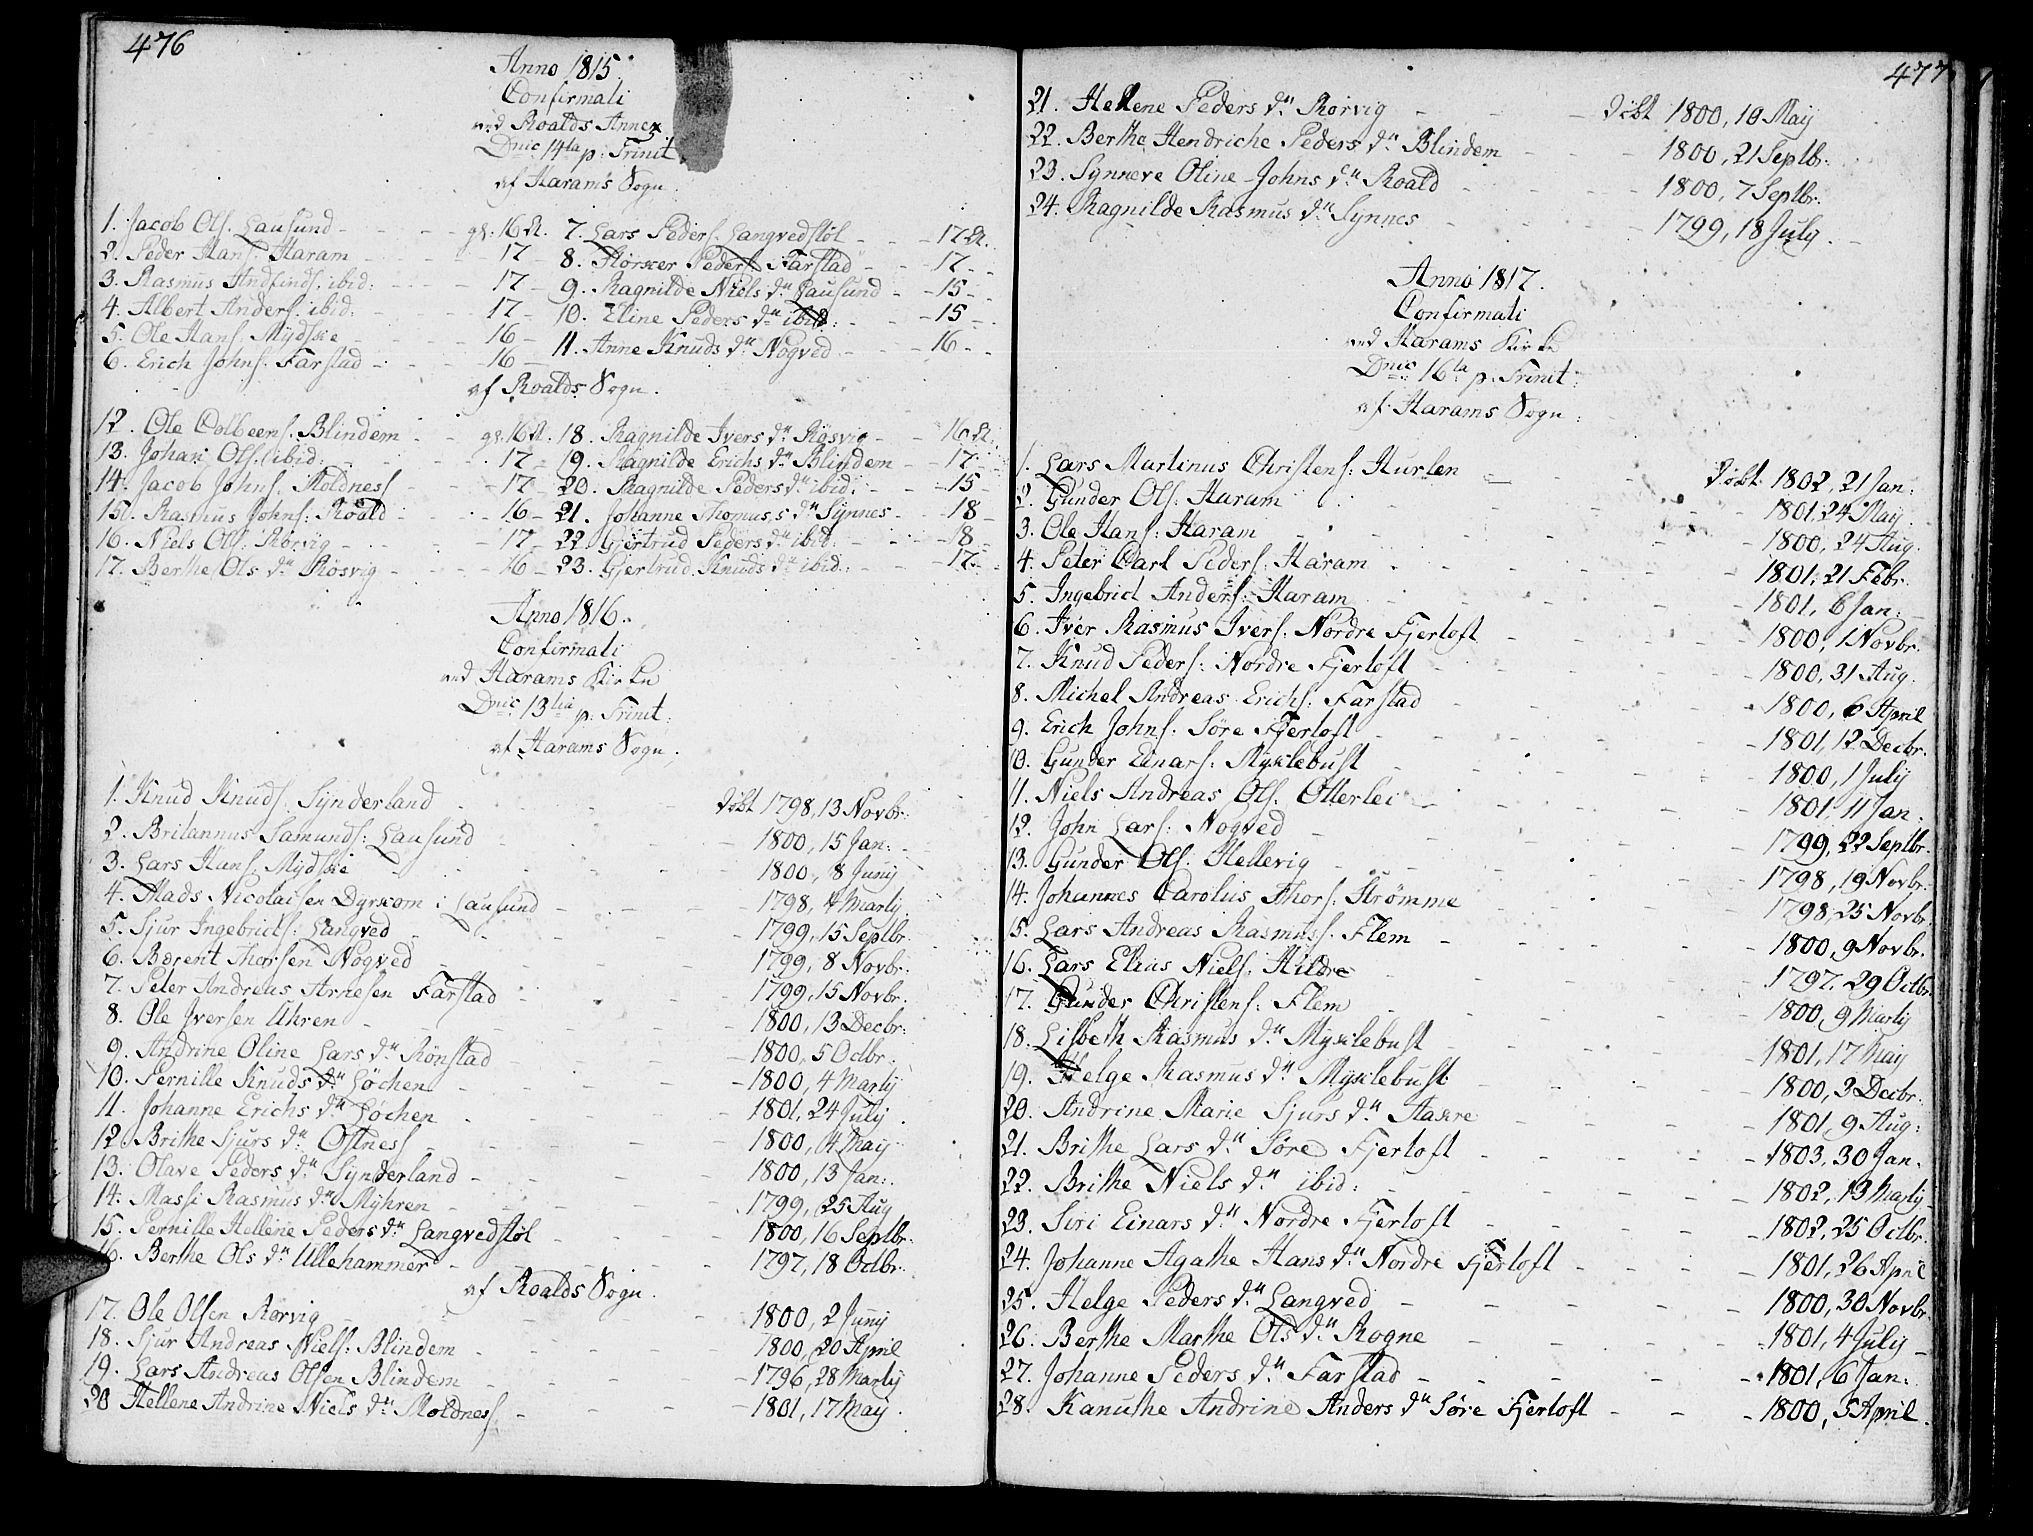 476
Anno 1815.
Confirmati
ved Roalds Annex
Dnic: 14ta p: Trinit
af Harams Sogn.
1. Jacob Ols. Lausund - gl. 16 A.
2. Peder Hans. Haram - 17 -
3. Rasmus Andfinds. ibid: - 17 -
4. Albert Anders. ibid: - 17 -
5. Ole Hans. Mydskie - 16 -
6. Erich Johns. Farstad - 16 -
7. Lars Peders. Langvedstøl - 17 A.
8. Størker Peders. Farstad - 17 -
9. Ragnilde Niels dr Lausund - 15 -
10. Eline Peders dr ibid: - 15 -
11. Anne Knuds dr Nogved - 16 -
af Roalds Sogn.
12. Ole Colbeens. Blindem - gl. 16 A.
13. Johan Ols. ibid: - 17 -
14. Jacob Johns. Moldness - 17 -
15. Rasmus Johns: Roald - 16 -
16. Niels Ols. Rørvig - 17 -
17. Berthe Ols dr Røsvig - 16 -
18. Ragnilde Ivers dr Røsvig - 16 A.
19. Ragnilde Erichs dr Blindem - 17 -
20. Ragnilde Peders dr ibid: - 15 -
21. Johanne Thomus,s dr Synnes - 18 -
22. Gjertrud Peders dr ibid: - 18 -
23. Gjertrud Knuds dr ibid: - 17 -
Anno 1816.
Confirmati
ved Harams Kirke
Dnic: 13tia p: Trinit:
af Harams Sogn.
1. Knud Knuds. Synderland - døbt 1798, 13 Novbr:
2. Britannus Samunds: Lausund - 1800, 15 Jan:
3. Lars Hans. Mydskie - 1800, 8 Juny
4. Mads Nicolaisen Dyrkorn i Lausund - 1798, 4 Marty
5. Sjur Ingebricts: Langved - 1799, 15 Septbr.
6. Barent Thorsen Nogved - 1799, 8 Novbr.
7. Peter Andreas Arnesen Farstad - 1799, 15 Novbr.
8. Ole Iversen Uhren - 1800, 13 Decbr:
9. Andrine Oline Lars dr Rønstad - 1800, 5 Octbr.
10. Pernille Knuds dr Løchen - 1800, 4 Marty
11. Johanne Erichs dr Løchen - 1801, 24 July.
12. Brithe Sjurs dr Ostness - 1800, 4 May
13. Olave Peders dr Synderland - 1800, 13 Jan:
14. Massi Rasmus dr Myhren - 1799, 25 Aug
15. Pernille Hellene Peders dr Langvedstøl - 1800, 16 Septbr.
16. Berthe Ols dr Ullehammer - 1797, 18 Octbr.
af Roalds Sogn.
17. Ole Olsen Rørvig - 1800, 2 Juny
18. Sjur Andreas Niels: Blindem - 1800, 20 April
19. Lars Andreas Olsen Blindem - 1796, 28 Marty
20 Hellene Andrine Niels dr Moldness. - 1801, 17 May.
477
21. Hellene Peders dr Rørvig - døbt 1800, 10 May
22. Berthe Hendriche Peders dr Blindem - 1800, 21 Septbr.
23. Synneve Oline Johns dr Roald - 1800, 7 Septbr.
24. Ragnilde Rasmus dr Synnes - 1799, 18 July.
Anno 1817.
Confirmati
ved Harams Kirke
Dnic: 16ta p: Trinit:
af Harams Sogn:
1. Lars Martinus Christens: Hurlen - døbt 1802, 21 Jan:
2. Gunder Ols: Haram - 1801, 24 May.
3. Ole Hans: Haram - 1800, 24 Aug.
4. Peter Carl Peders: Haram - 1801, 21 Febr.
5. Ingebrict Anders: Haram - 1801, 6 Jan:
6. Iver Rasmus Ivers: Nordre Fjertoft - 1800, 1 Novbr.
7. Knud Peders: Nordre Fjertoft - 1800, 31 Aug.
8. Michel Andreas Erichs: Farstad - 1800, 6 April
9. Erich Johns: Søre Fjertoft - 1801, 12 Decbr.
10. Gunder Einars: Myklebust - 1800, 1 July
11. Niels Andreas Ols. Otterlei - 1801, 11 Jan:
12. John Lars: Nogved - 1799, 22 Septbr.
13. Gunder Ols. Hellevig - 1798, 19 Novbr.
14. Johannes Carolus Thors: Strømme - 1798, 25 Novbr.
15. Lars Andreas Rasmuss. Flem - 1800, 9 Novbr.
16. Lars Elias Niels. Hildre - 1797, 29 Octbr.
17. Gunder Christens: Flem - 1800, 9 Marty
18. Lisbeth Rasmus dr Myklebust - 1801, 17 May
19. Helge Rasmus dr Myklebust - 1800, 3 Decbr.
20. Andrine Marie Sjurs dr Aakre - 1801, 9 Aug:
21. Brithe Lars dr Søre Fjertoft - 1803, 30 Jan.
22. Brithe Niels dr ibid: - 1802, 13 Marty
23. Siri Einars dr Nordre Fjertoft - 1802, 25 Octbr.
24. Johanne Agathe Hans dr Nordre Fjertoft - 1801, 26 April
25. Helge Peders dr Langved - 1800, 30 Novbr.
26. Berthe Marthe Ols dr Rogne - 1801, 4 July
27. Johanne Peders dr Farstad - 1801, 6 Jan:
28. Kanuthe Andrine Anders dr Søre Fjertoft - 1800, 5 April.